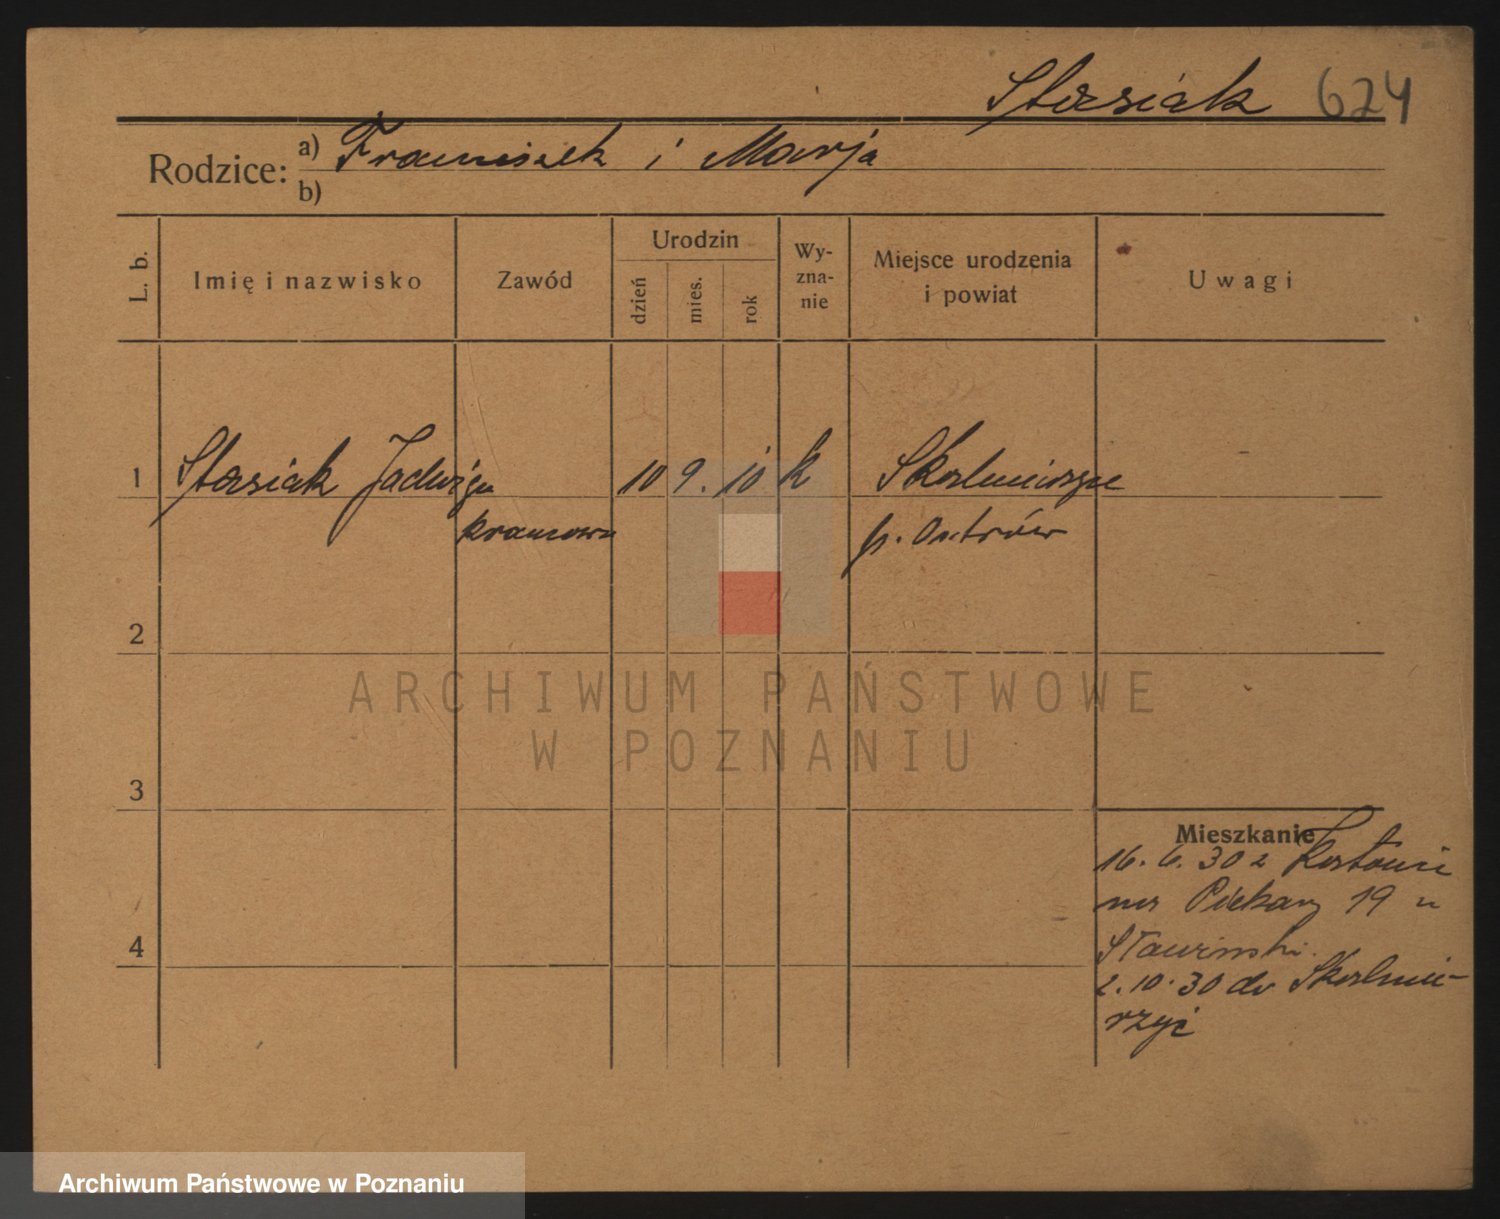 Stasiak 624
Rodzice: a) Franciszek i Marja
b)
L. b. Imię i nazwisko Zawód Urodzin dzień mies. rok Wy-zna-nie Miejsce urodzenia i powiat Uwagi
1 Stasiak Jadwiga 10 9. 10 k Skalmierzyce
krawcowa p. Ostrów
2
ARCHIWUM PAŃSTWOWE
W POZNANIU
3
Mieszkanie
16. 6. 30 z
na Piekary 19 u
4
Sławinski.
2. 10. 30 do Skalmie-
rzyc
Archiwum Państwowe w Poznaniu